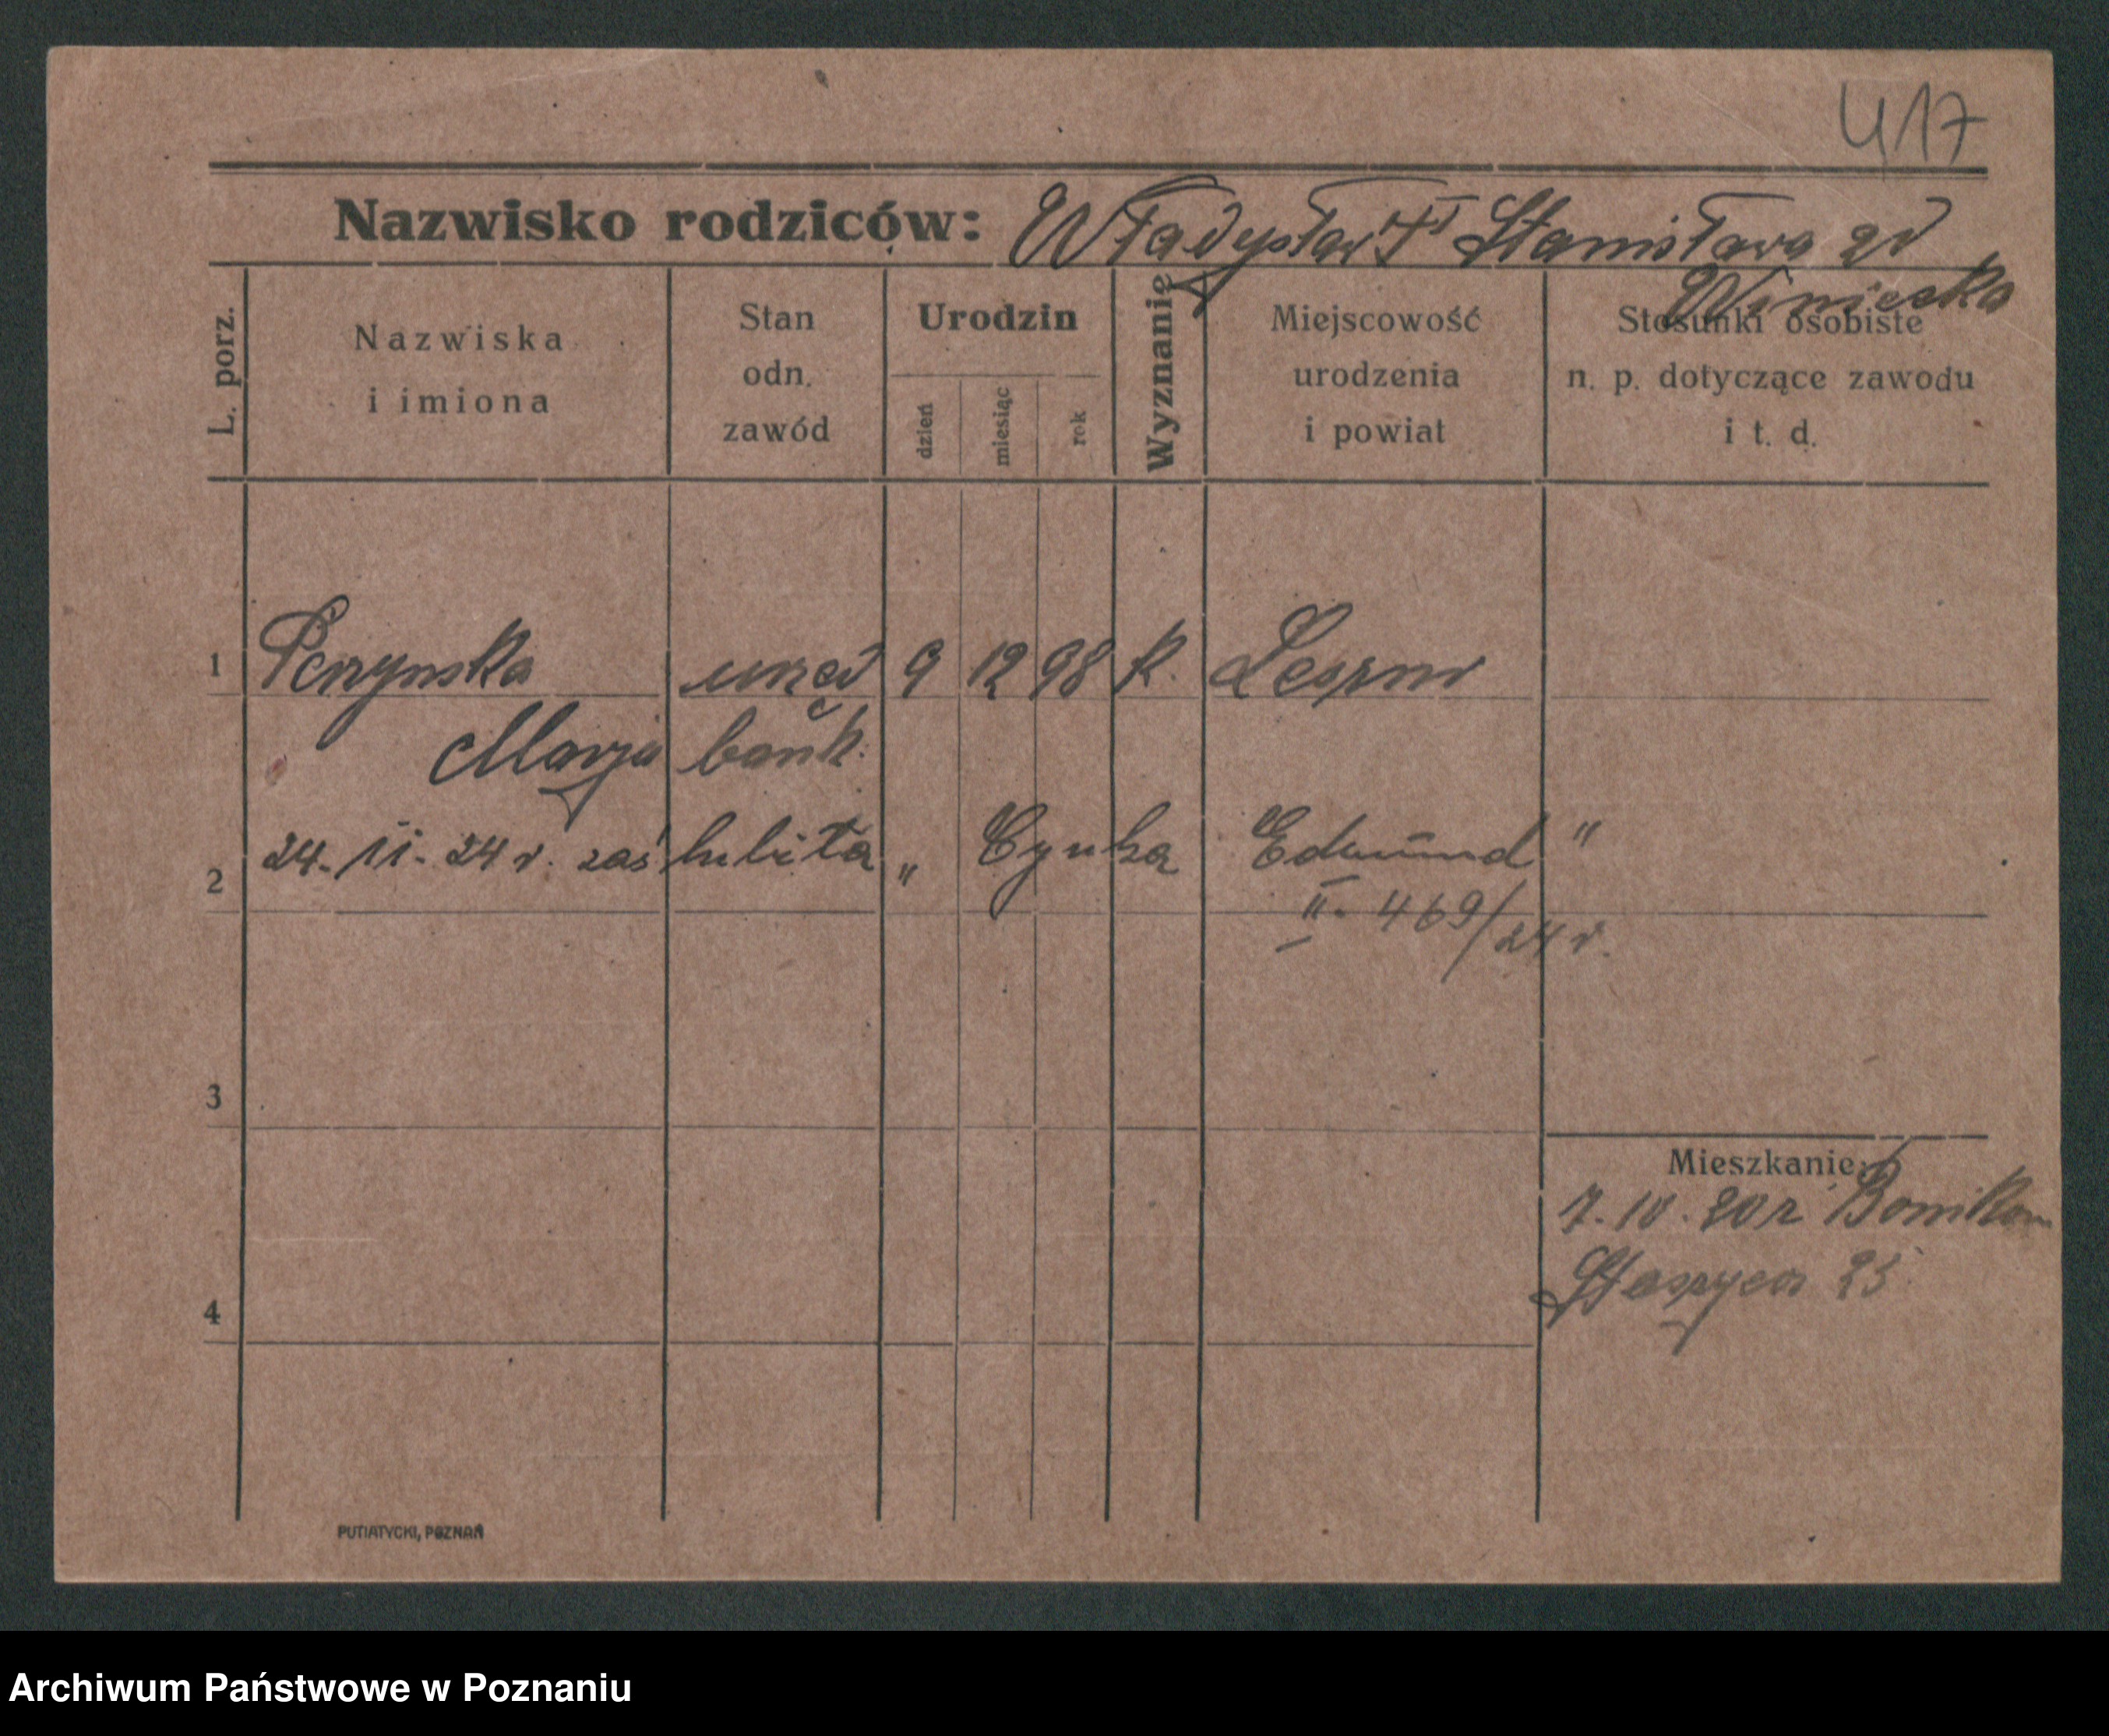 417
Nazwisko rodziców: Władysław † Stanisława
Winiecka
L. porz.
Nazwiska
i imiona
Stan
odn.
zawód
Urodzin
dzień
miesiąc
rok
Wyznanie
Miejscowość
urodzenia
i powiat
Stosunki osobiste
n. p. dotyczące zawodu
i t. d.
1 Perzynska urzęd 9 12 98 k. Leszno
Marja bank.
2 24. 11. 24 r. zaś lubiła „ Cynka Edmund "
II. 469/24 r.
3
Mieszkanie:
7. 10. 20 r
Staszyca 23
4
PUTIATYCKI, POZNAŃ
Archiwum Państwowe w Poznaniu